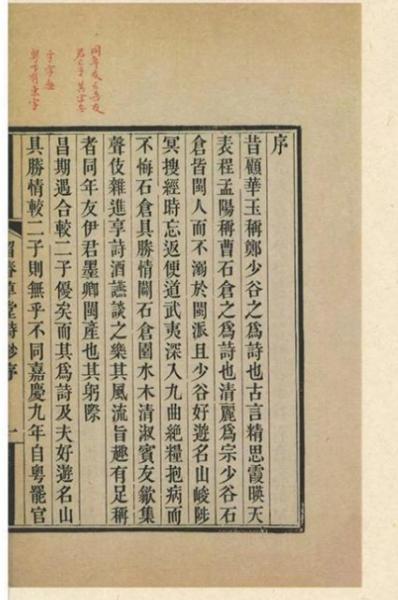 序
昔顧華玉稱鄭少谷之爲詩也古言精思霞暎天
表程孟陽稱曹石倉之爲詩也清麗爲宗少谷石
倉皆閩人而不溺於閩派且少谷好遊名山峻陟
冥搜經時忘返便道武夷深入九曲絕糧抱病而
不悔石倉具勝情闢石倉園水木清淑賓友歙集
聲伎雜進享詩酒讌談之樂其風流旨趣有足稱
者同年友伊君墨卿閩產也其躬際
昌期遇合較二子優矣而其爲詩及夫好遊名山
具勝情較二子則無乎不同嘉慶九年自粵罷官
留春草堂詩鈔序 一